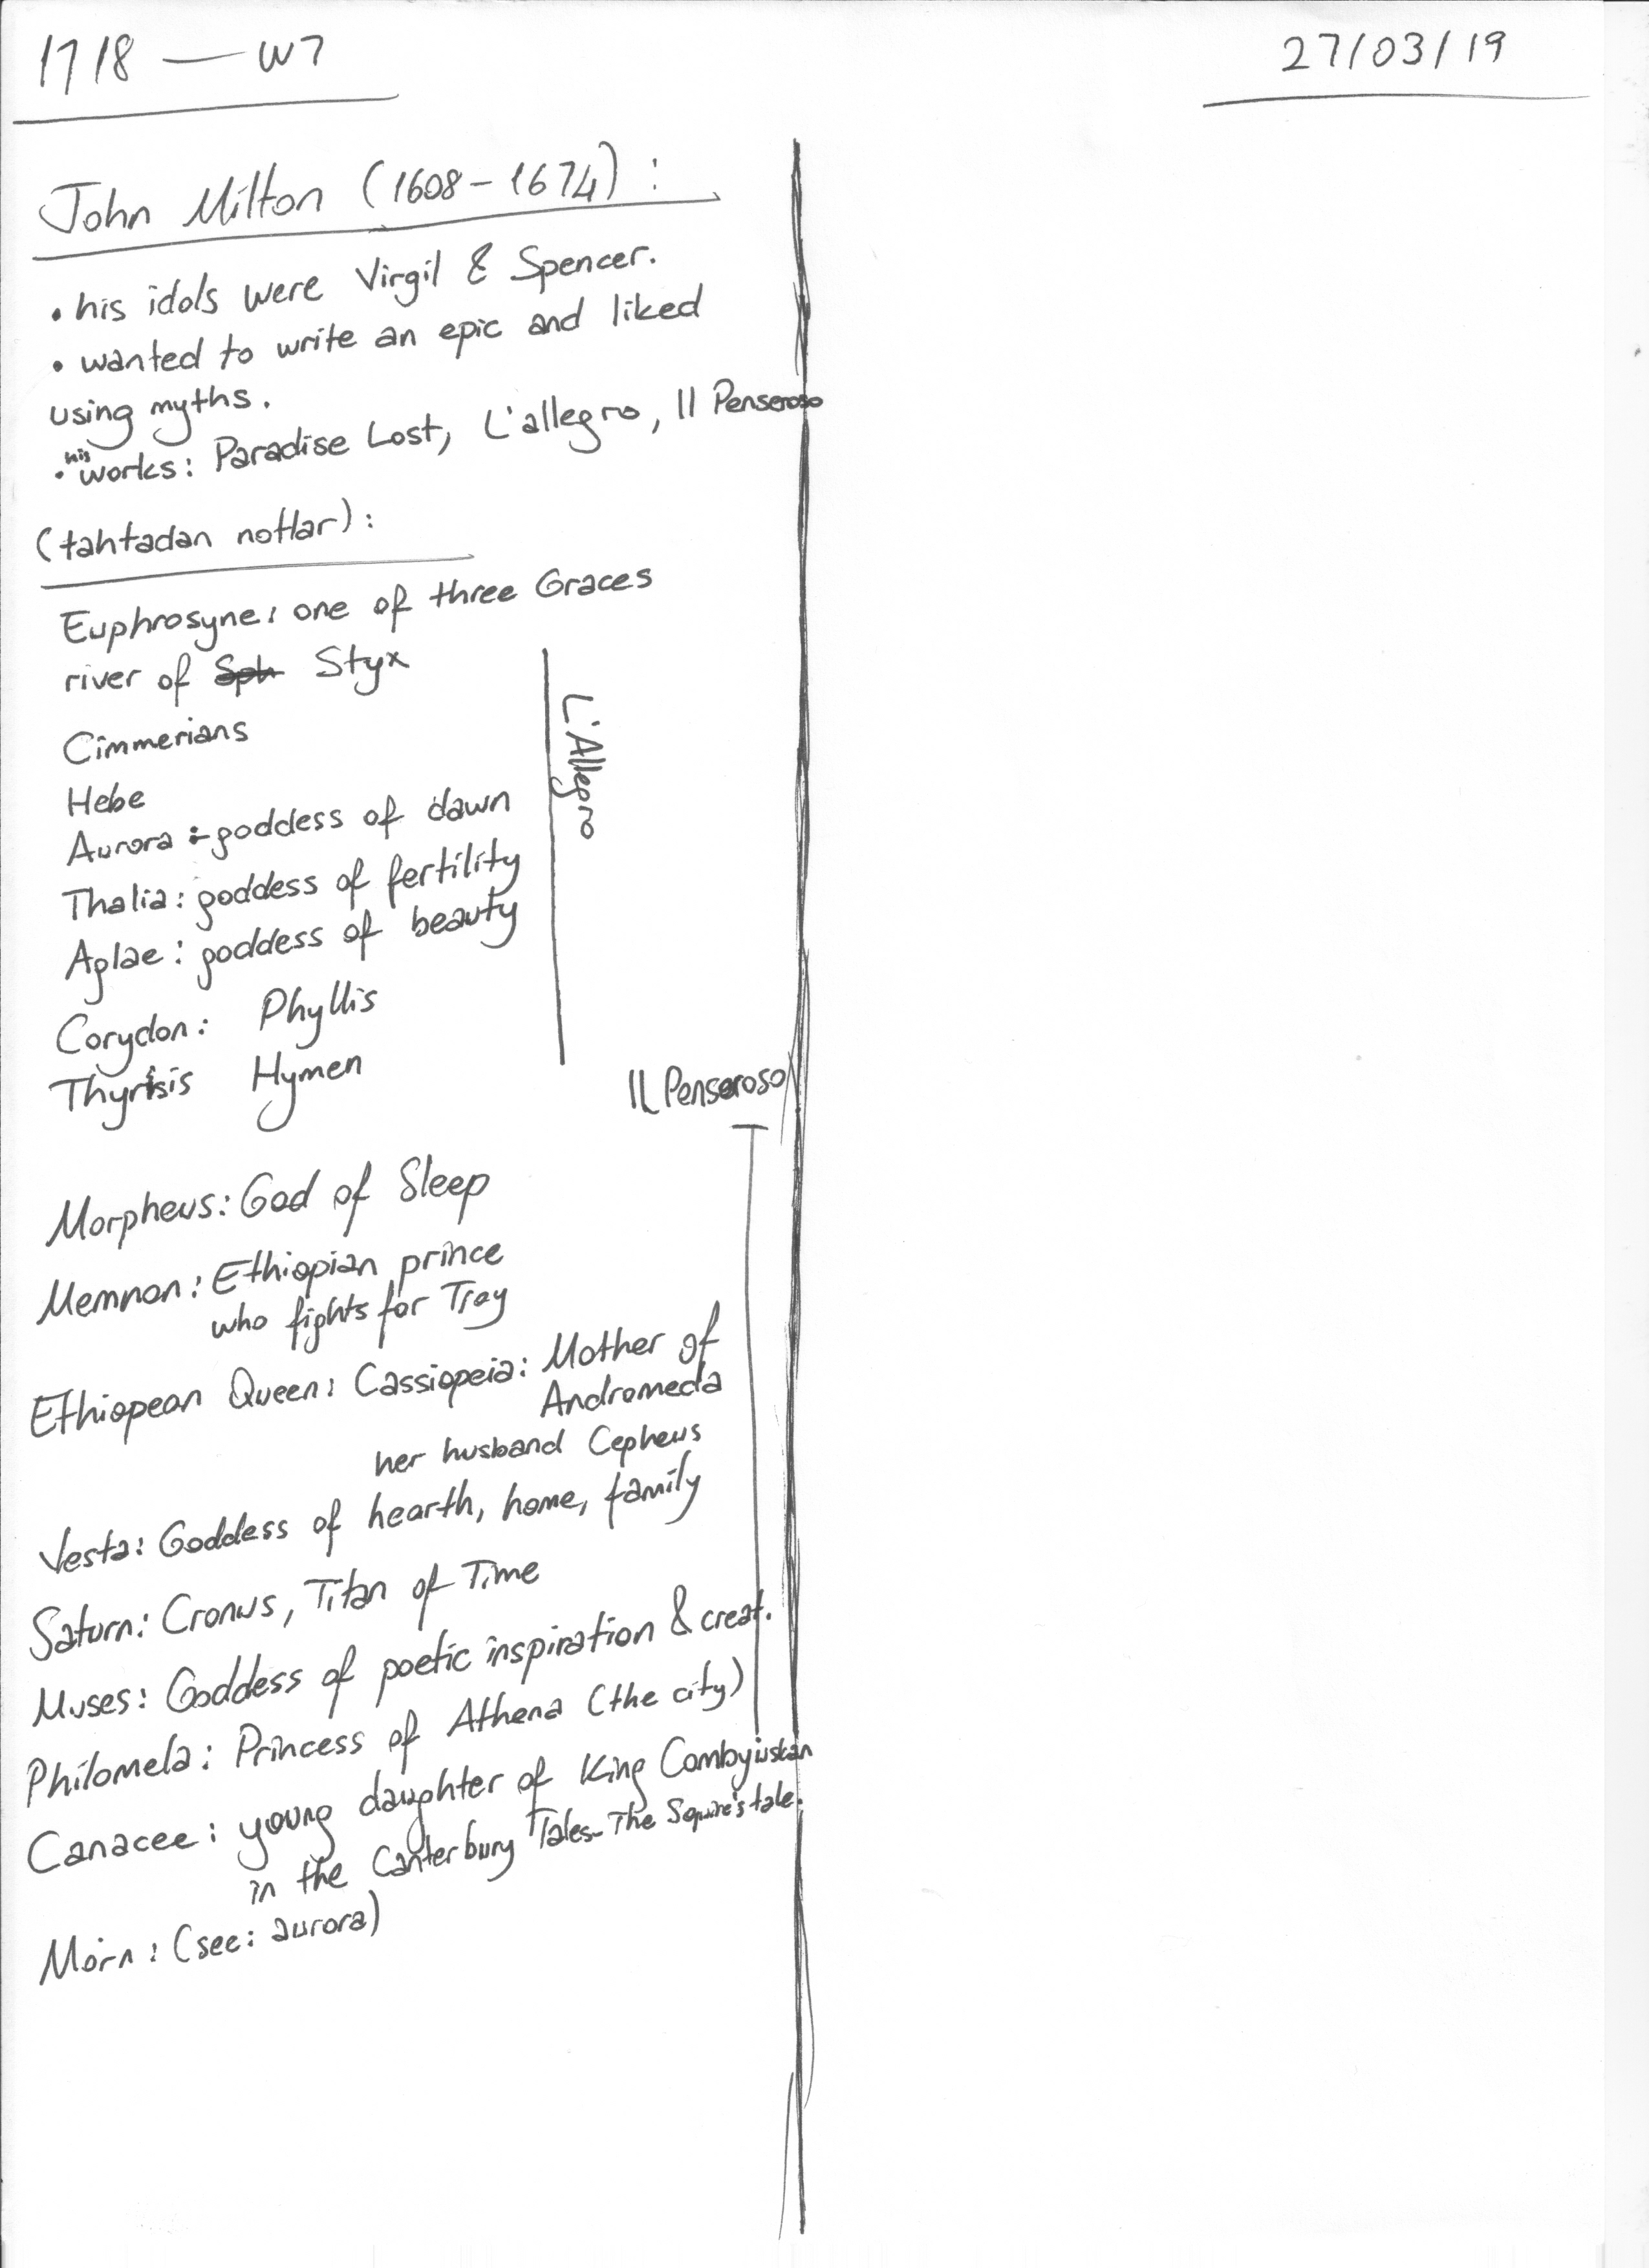 1718 — W7
27/03/19
John Milton (1608-1674):
• his idols were Virgil & Spencer.
• wanted to write an epic and liked
using myths.
• his works: Paradise Lost, L'allegro, Il Penseroso
(tahtadan notlar):
Euphrosyne: one of three Graces
river of Styx
Cimmerians
Hebe
Aurora :- goddess of dawn
Thalia: goddess of fertility
Aglae: goddess of beauty
Corydon: Phyllis
Thyrsis Hymen
L'Allegro
IL Penseroso
Morpheus: God of Sleep
Memnon: Ethiopian prince
who fights for Troy
Ethiopean Queen: Cassiopeia: Mother of
Andromeda
her husband Cepheus
Vesta: Goddess of hearth, home, family
Saturn: Cronus, Titan of Time
Muses: Goddess of poetic inspiration & creat.
Philomela: Princess of Athena (the city)
Canacee: young daughter of King Cambyiuskan
in the Canterbury Tales- The Squire's tale.
Morn: (see: aurora)